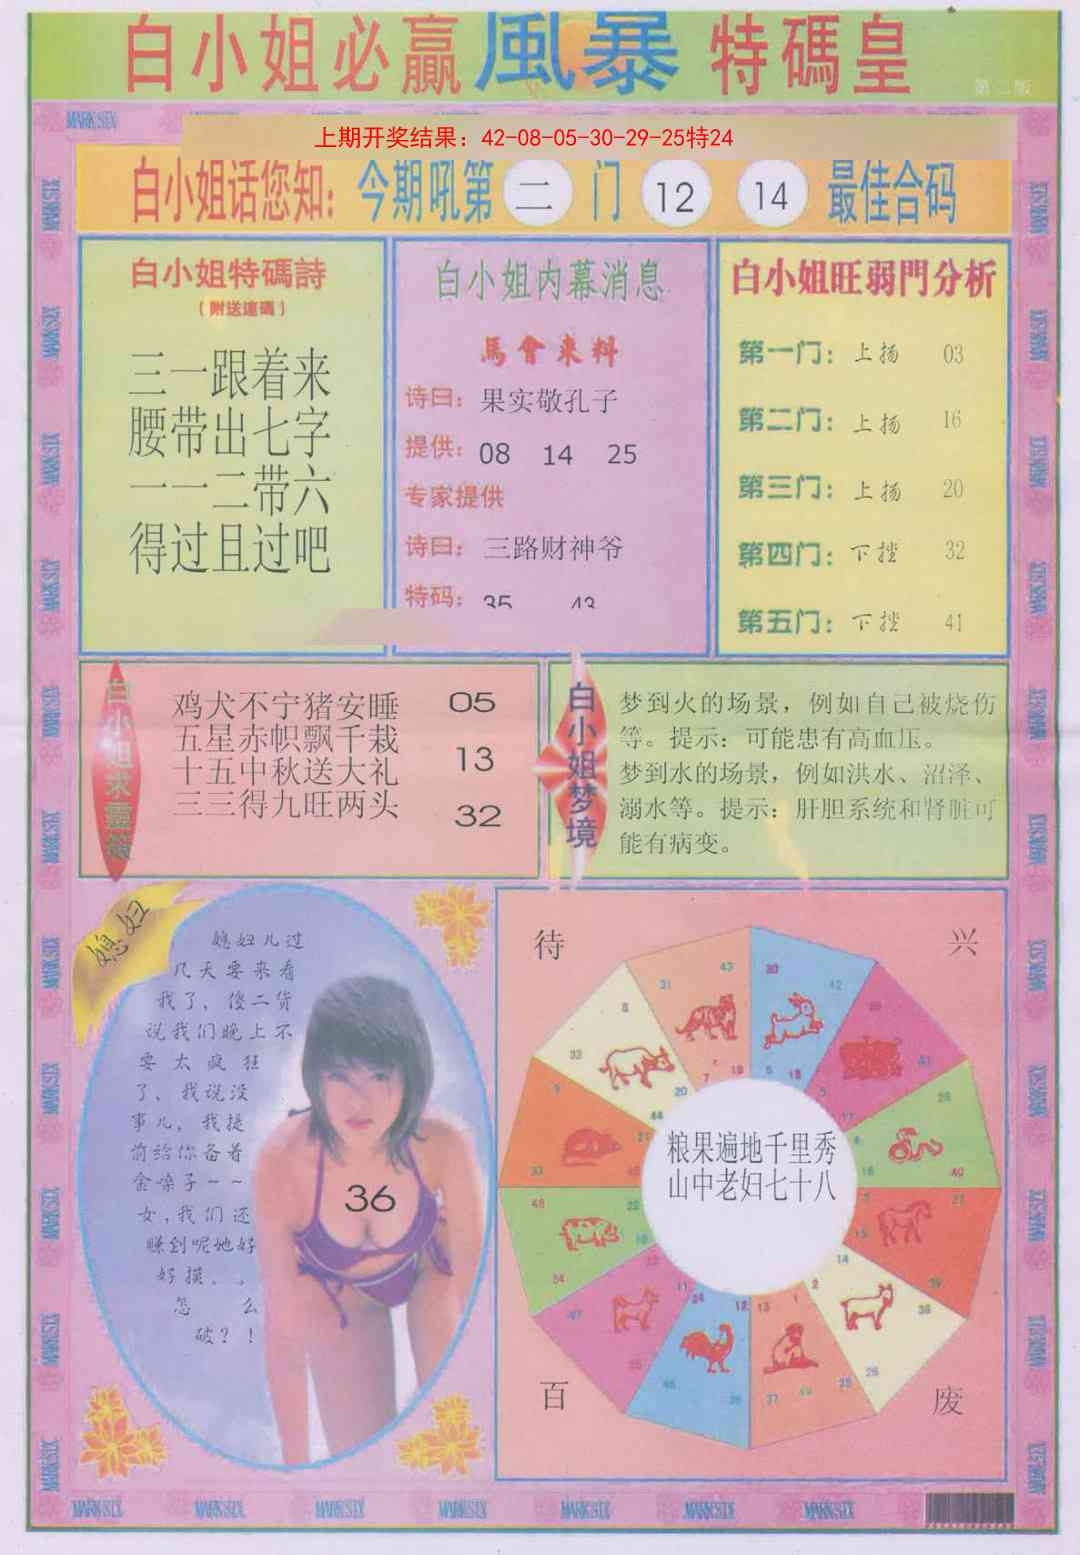 白小姐必贏風暴特碼皇
第二版
MARK SIX
上期开奖结果：42-08-05-30-29-25特24
白小姐话您知：今期吼第 二 门 12 14 最佳合码
白小姐特碼詩
（附送連碼）
三一跟着来
腰带出七字
一一二带六
得过且过吧
白小姐内幕消息
馬會来料
诗曰：果实敬孔子
提供：08 14 25
专家提供
诗曰：三路财神爷
特码：35 43
白小姐旺弱門分析
第一门：上扬 03
第二门：上扬 16
第三门：上扬 20
第四门：下挫 32
第五门：下挫 41
白小姐求靈籤
鸡犬不宁猪安睡 05
五星赤帜飘千栽
十五中秋送大礼 13
三三得九旺两头 32
白小姐梦境
梦到火的场景，例如自己被烧伤
等。提示：可能患有高血压。
梦到水的场景，例如洪水、沼泽、
溺水等。提示：肝胆系统和肾脏可
能有病变。
媳妇
媳妇儿过
几天要来看
我了，傻二货
说我们晚上不
要太疯狂
了，我说没
事儿，我提
前给你备着
金嗓子--
女，我们还
赚到呢她好
好摸。。
怎么
破？！
36
待
兴
粮果遍地千里秀
山中老妇七十八
百
废
MARK SIX MARK SIX MARK SIX MARK SIX MARK SIX MARK SIX MARK SIX